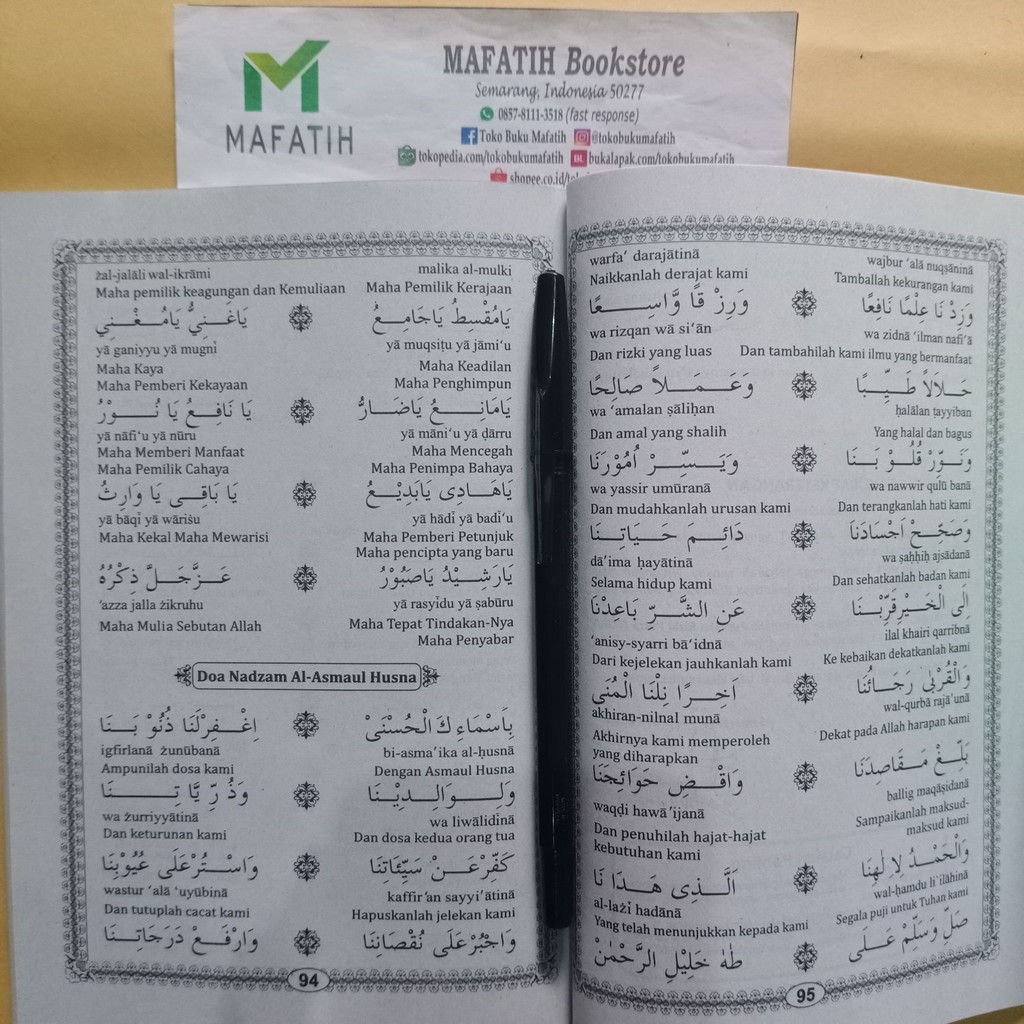 MAFATIH
MAFATIH Bookstore
Semarang, Indonesia 50277
0857-8111-3518 (fast response)
Toko Buku Mafatih @tokobukumafatih
tokopedia.com/tokobukumafatih BL bukalapak.com/tokobukumafatih
shopee.co.id/
malika al-mulki żal-jalāli wal-ikrāmi
Maha Pemilik Kerajaan Maha pemilik keagungan dan Kemuliaan
يَامُقْسِطُ يَاجَامِعُ يَاغَنِيُّ يَامُغْنِي
yā muqsiṭu yā jāmi‘u yā ganiyyu yā mugnī
Maha Keadilan Maha Kaya
Maha Penghimpun Maha Pemberi Kekayaan
يَامَانِعُ يَاضَارُّ يَا نَافِعُ يَا نُوْرُ
yā māni‘u yā ḍārru yā nāfi‘u yā nūru
Maha Mencegah Maha Memberi Manfaat
Maha Penimpa Bahaya Maha Pemilik Cahaya
يَاهَادِى يَابَدِيْعُ يَا بَاقِى يَا وَارِثُ
yā hādī yā badī‘u yā bāqī yā wāriṡu
Maha Pemberi Petunjuk Maha Kekal Maha Mewarisi
Maha pencipta yang baru
يَارَشِيْدُ يَاصَبُوْرُ عَزَّجَلَّ ذِكْرُهُ
yā rasyīdu yā ṣabūru ‘azza jalla żikruhu
Maha Tepat Tindakan-Nya Maha Mulia Sebutan Allah
Maha Penyabar
Doa Nadzam Al-Asmaul Husna
بِاَسْمَاءِكَ الْحُسْنَىْ اِغْفِرْلَنَا ذُنُوْبَنَا
bi-asma’ika al-ḥusnā igfirlanā żunūbanā
Dengan Asmaul Husna Ampunilah dosa kami
وَلِوَالِدِيْنَا وَذُرِّيَّاتِنَا
wa liwālidīnā wa żurriyyātinā
Dan dosa kedua orang tua Dan keturunan kami
كَفِّرْعَنْ سَيِّئَاتِنَا وَاسْتُرْعَلَى عُيُوْبِنَا
kaffir‘an sayyi’ātinā wastur ‘alā ‘uyūbinā
Hapuskanlah jelekan kami Dan tutuplah cacat kami
وَاجْبُرْعَلَى نُقْصَانِنَا وَارْفَعْ دَرَجَاتِنَا
94
wajbur ‘alā nuqṣāninā warfa‘ darajātinā
Tamballah kekurangan kami Naikkanlah derajat kami
وَزِدْنَا عِلْمًا نَافِعًا وَرِزْقًا وَّاسِعًا
wa zidnā ‘ilman nafi‘ā wa rizqan wā si‘ān
Dan tambahilah kami ilmu yang bermanfaat Dan rizki yang luas
حَلَالًا طَيِّبًا وَعَمَلًا صَالِحًا
ḥalālan ṭayyiban wa ‘amalan ṣāliḥan
Yang halal dan bagus Dan amal yang shalih
وَنَوِّرْ قُلُوْبَنَا وَيَسِّرْ اُمُوْرَنَا
wa nawwir qulū banā wa yassir umūranā
Dan terangkanlah hati kami Dan mudahkanlah urusan kami
وَصَحِّحْ اَجْسَادَنَا دَائِمَ حَيَاتِنَا
wa ṣaḥḥiḥ ajsādanā dā’ima ḥayātinā
Dan sehatkanlah badan kami Selama hidup kami
اِلَى الْخَيْرِقَرِّبْنَا عَنِ الشَّرِّ بَاعِدْنَا
ilal khairi qarribnā ‘anisy-syarri bā‘idnā
Ke kebaikan dekatkanlah kami Dari kejelekan jauhkanlah kami
وَالْقُرْبَى رَجَائُنَا اَخِرًا نِلْنَا الْمُنَى
wal-qurbā rajā’unā akhiran-nilnal munā
Dekat pada Allah harapan kami Akhirnya kami memperoleh yang diharapkan
بَلِّغْ مَقَاصِدَنَا وَاقْضِ حَوَائِجَنَا
ballig maqāṣidanā waqḍi hawā’ijanā
Sampaikanlah maksud-maksud kami Dan penuhilah hajat-hajat kebutuhan kami
وَالْحَمْدُ لِاِلٰهِنَا اَلَّذِى هَدَانَا
wal-ḥamdu li’ilāhinā al-lażī hadānā
Segala puji untuk Tuhan kami Yang telah menunjukkan kepada kami
صَلِّ وَسَلِّمْ عَلَى طٰهٰ خَلِيْلِ الرَّحْمٰنْ
95